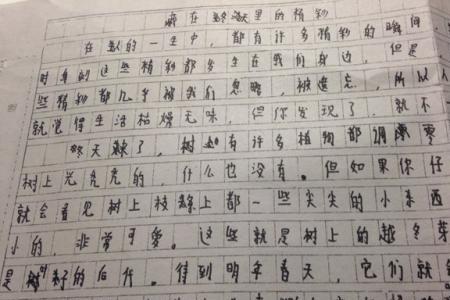 藏在寂寞里的精彩
在人的一生中,都有许多精彩的瞬间,
时真的这些精彩都发生在我们身边,但是
些精彩都几乎被我们忽略,被遗忘,所以人
就觉得生活枯燥无味,但你发现了,就不
冬天来了,树有许多植物都凋零
树上光秃秃的,什么也没有。但如果你仔
就会看见树上枝条上都一些尖尖的小东西
小的,非常可爱。这些就是树上的越冬芽
是树籽的后代。待到明年春天,它们就